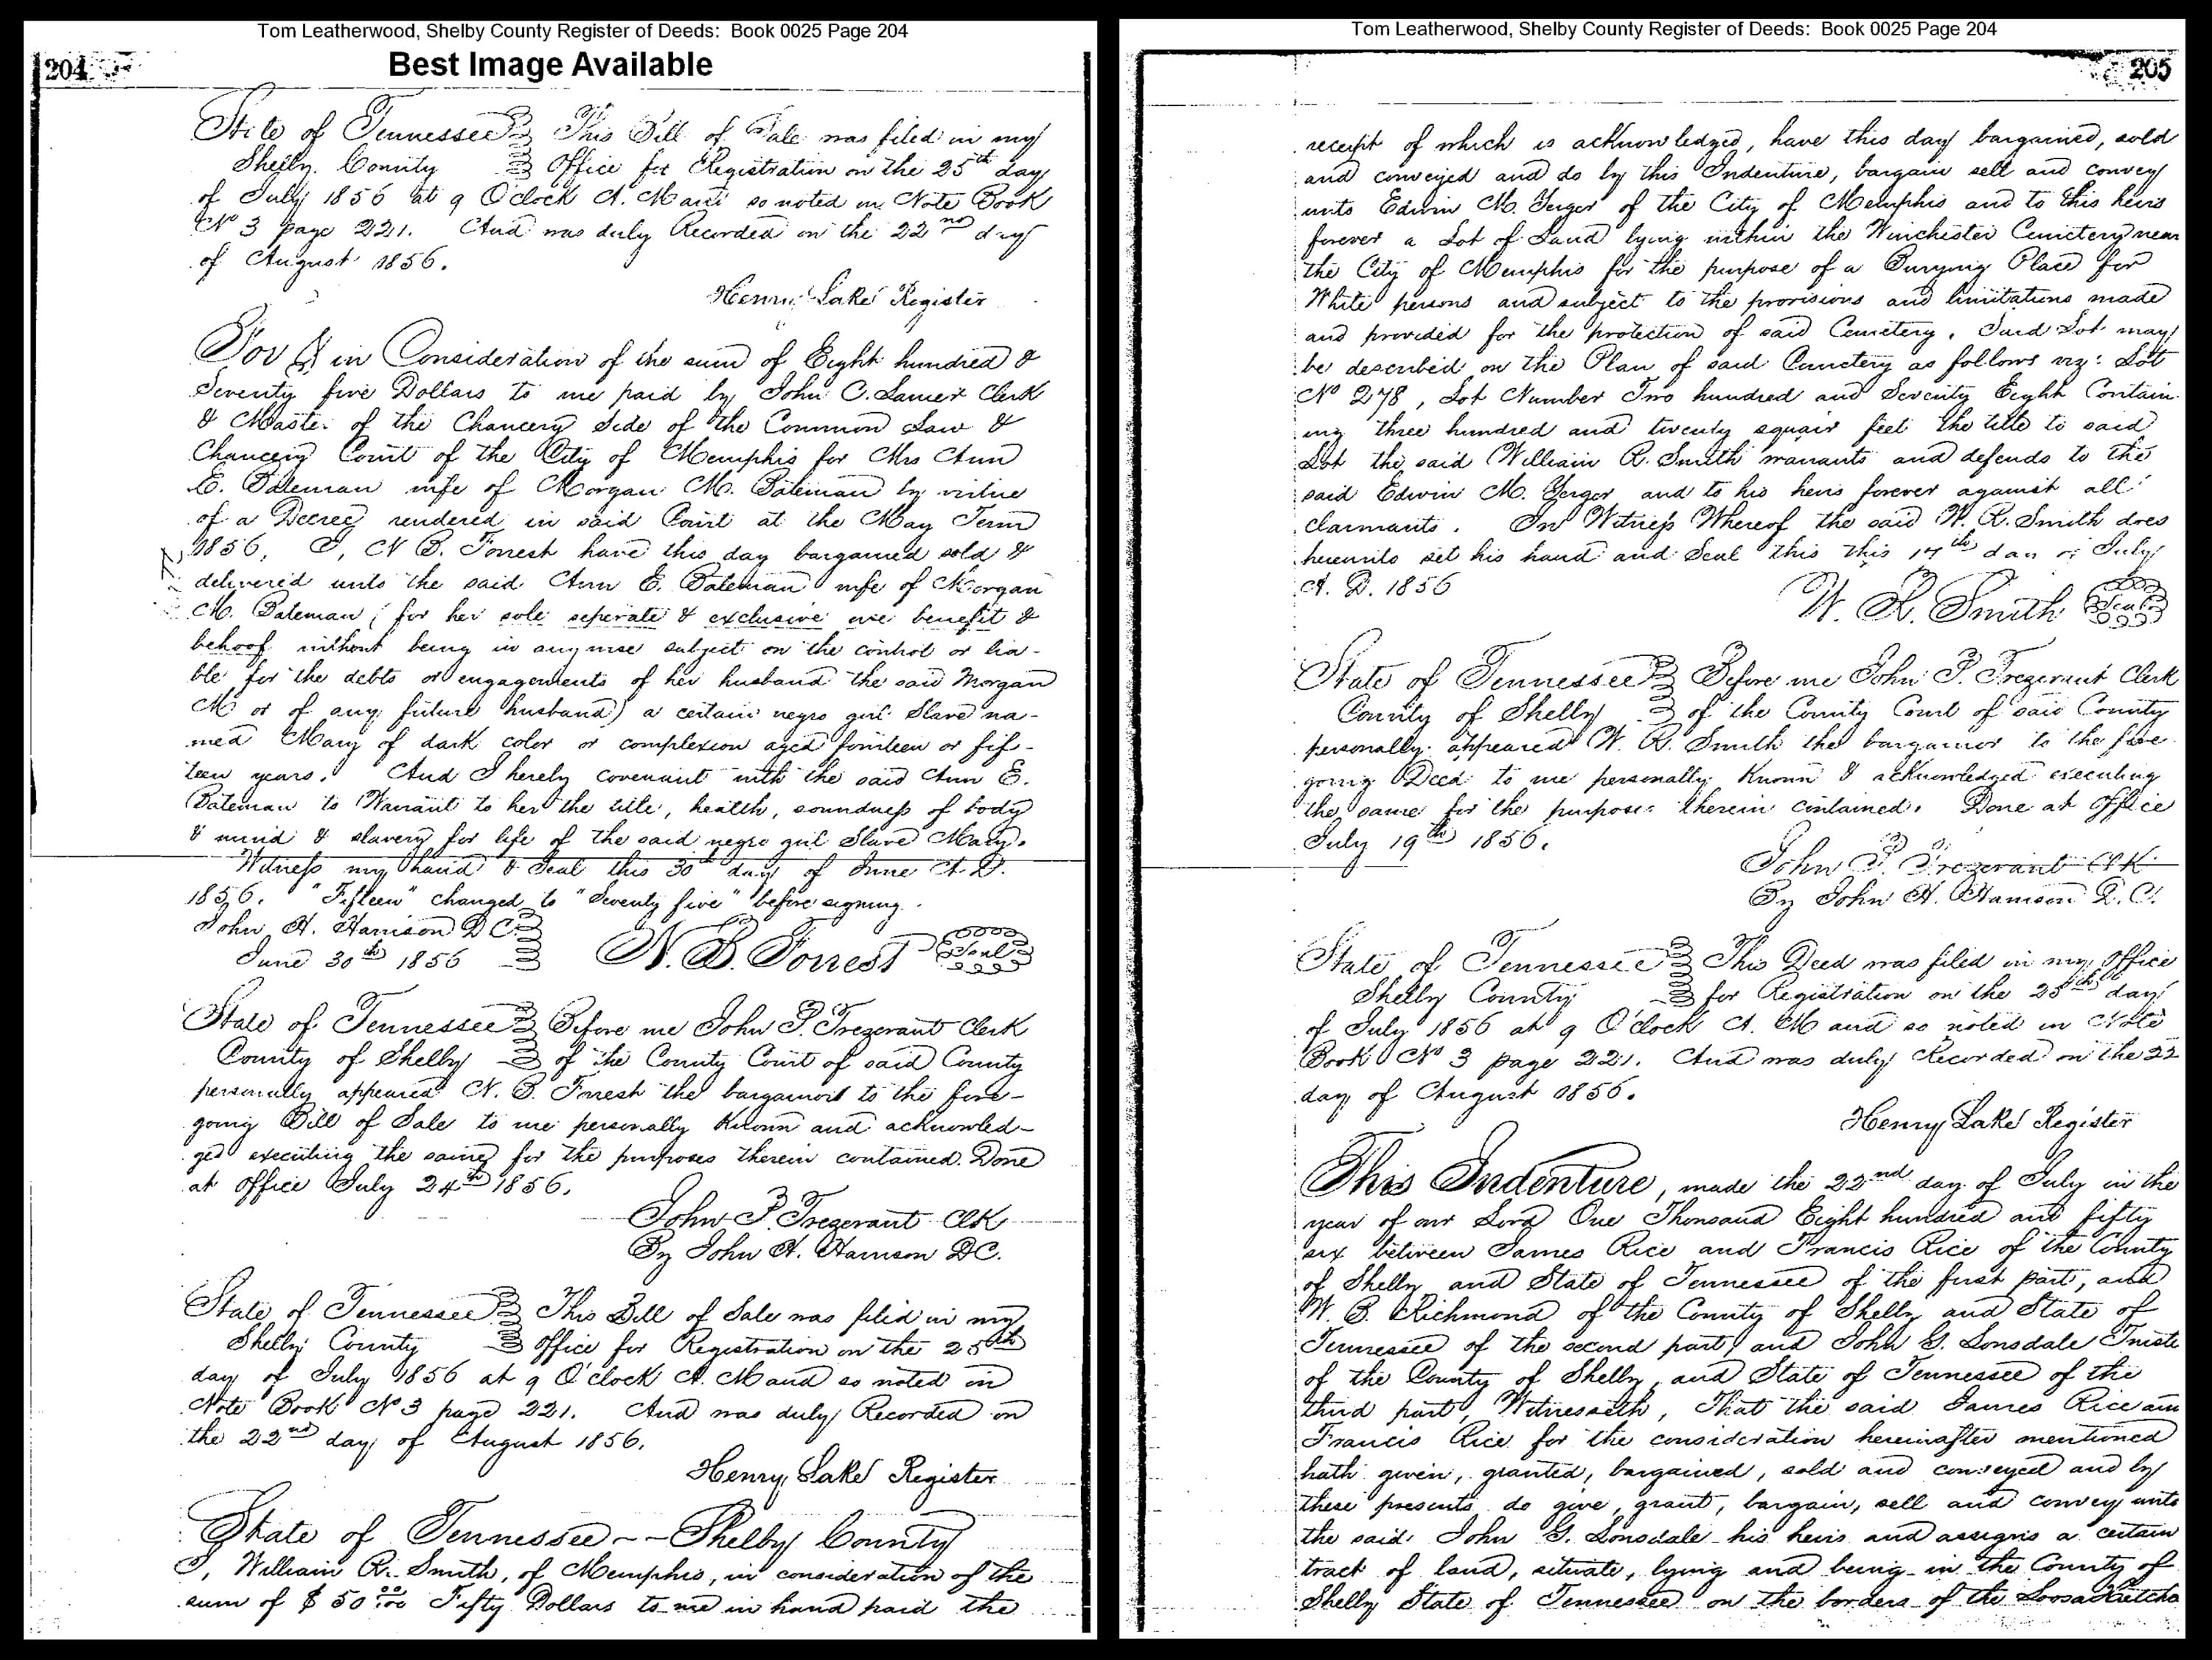 Tom Leatherwood, Shelby County Register of Deeds: Book 0025 Page 204
Best Image Available
204
State of Tennessee This Bill of Sale was filed in my
Shelby County Office for Registration on the 25th day
of July 1856 at 9 O'Clock A. M and so noted in Note Book
No 3 page 221. And was duly Recorded on the 22nd day
of August 1856.
Henry Lake Register
For & in Consideration of the sum of Eight hundred &
Seventy five Dollars to me paid by John C. Lanier Clerk
& Master of the Chancery Side of the Common Law &
Chancery Court of the City of Memphis for Mrs Ann
E. Bateman wife of Morgan M. Bateman by virtue
of a Decree rendered in said Court at the May Term
1856, I, N B. Forrest have this day bargained sold &
delivered unto the said Ann E. Bateman wife of Morgan
M. Bateman, (for her sole seperate & exclusive use benefit &
behoof without being in anywise subject on the control or lia-
ble for the debts or engagements of her husband the said Morgan
M. or of any future husband) a certain negro girl Slave na-
med Mary of dark color or complexion aged fourteen or fif-
teen years. And I hereby covenant with the said Ann E.
Bateman to Warrant to her the title, health, soundness of body
& mind & slavery for life of the said negro girl Slave Mary.
Witness my hand & Seal this 30th day of June A.D.
1856. "Fifteen" changed to "Seventy five" before signing.
John H. Harrison DC.
June 30th 1856 N. B. Forrest Seal
State of Tennessee Before me John P. Trezevant Clerk
County of Shelby of the County Court of said County
personally appeared N. B. Forrest the bargainor to the fore-
going Bill of Sale to me personally Known and acknowled-
ged executing the same for the purposes therein contained. Done
at office July 24th 1856.
John P. Trezevant Clk
By John H. Harrison DC.
State of Tennessee This Bill of Sale was filed in my
Shelby County Office for Registration on the 25th
day of July 1856 at 9 O'clock A. M and so noted in
Note Book No 3 page 221. And was duly Recorded on
the 22nd day of August 1856.
Henry Lake Register
State of Tennessee -- Shelby County
I, William R. Smith, of Memphis, in consideration of the
sum of $ 50.00 Fifty Dollars to me in hand paid the
Tom Leatherwood, Shelby County Register of Deeds: Book 0025 Page 204
205
receipt of which is acknowledged, have this day bargained, sold
and conveyed and do by this Indenture, bargain sell and convey
unto Edwin M. Yerger of the City of Memphis and to his heirs
forever a Lot of Land lying within the Winchester Cemetery near
the City of Memphis for the purpose of a Burying Place for
White persons and subject to the provisions and limitations made
and provided for the protection of said Cemetery. Said Lot may
be described on the Plan of said Cemetery as follows viz: Lot
No 278, Lot Number Two hundred and Seventy Eight Contain-
ing three hundred and twenty squair feet the title to said
Lot the said William R. Smith warrants and defends to the
said Edwin M. Yerger and to his heirs forever against all
claimants. In Witness Whereof the said W. R. Smith does
hereunto set his hand and Seal this this 17th day of July
A. D. 1856
W. R. Smith Seal
State of Tennessee Before me John P. Trezevant Clerk
County of Shelby of the County Court of said County
personally appeared W. R. Smith the bargainor to the fore-
going Deed to me personally Known & acknowledged executing
the same for the purposes therein contained. Done at Office
July 19th 1856.
John P. Trezevant Clk
By John H. Harrison D.C.
State of Tennessee This Deed was filed in my Office
Shelby County for Registration on the 25th day
of July 1856 at 9 O'clock A. M and so noted in Note
Book No 3 page 221. And was duly Recorded on the 22
day of August 1856.
Henry Lake Register
This Indenture, made the 22nd day of July in the
year of our Lord One Thousand Eight hundred and fifty
six between James Rice and Francis Rice of the County
of Shelby and State of Tennessee of the first part, and
W. B. Richmond of the County of Shelby and State of
Tennessee of the second part, and John G. Lonsdale Truste
of the County of Shelby, and State of Tennessee of the
third part, Witnesseth, That the said James Rice and
Francis Rice for the consideration hereinafter mentioned
hath given, granted, bargained, sold and conveyed and by
these presents do give, grant, bargain, sell and convey unto
the said John G. Lonsdale his heirs and assigns a certain
tract of land, situate, lying and being in the County of
Shelby State of Tennessee on the borders of the Loosahatcha